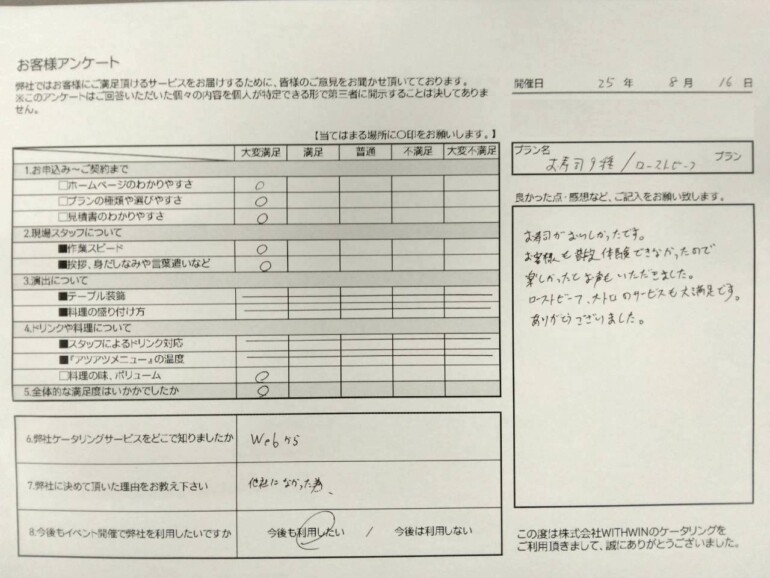 お客様アンケート
弊社ではお客様にご満足頂けるサービスをお届けするために、皆様のご意見をお聞かせ頂いております。
※このアンケートはご回答いただいた個々の内容を個人が特定できる形で第三者に開示することは決してありま
せん。
【当てはまる場所に〇印をお願いします。】
大変満足 満足 普通 不満足 大変不満足
1.お申込み～ご契約まで
□ホームページのわかりやすさ ○
□プランの種類や選びやすさ ○
□見積書のわかりやすさ ○
2.現場スタッフについて
■作業スピード ○
■挨拶、身だしなみや言葉遣いなど ○
3.演出について
■テーブル装飾
■料理の盛り付け方
4.ドリンクや料理について
■スタッフによるドリンク対応
■『アツアツメニュー』の温度
□料理の味、ボリューム ○
5.全体的な満足度はいかかでしたか ○
6.弊社ケータリングサービスをどこで知りましたか Webから
7.弊社に決めて頂いた理由をお教え下さい 他社になかった為、
8.今後もイベント開催で弊社を利用したいですか 今後も利用したい / 今後は利用しない
開催日 25 年 8 月 16 日
プラン名
お寿司9種/ローストビーフ プラン
良かった点・感想など、ご記入をお願い致します。
お寿司がおいしかったです。
お客様も普段体験できなかったので
楽しかったとお声もいただきました。
ローストビーフ、大トロのサービスも大満足です。
ありがとうございました。
この度は株式会社WITHWINのケータリングを
ご利用頂きまして、誠にありがとうございました。